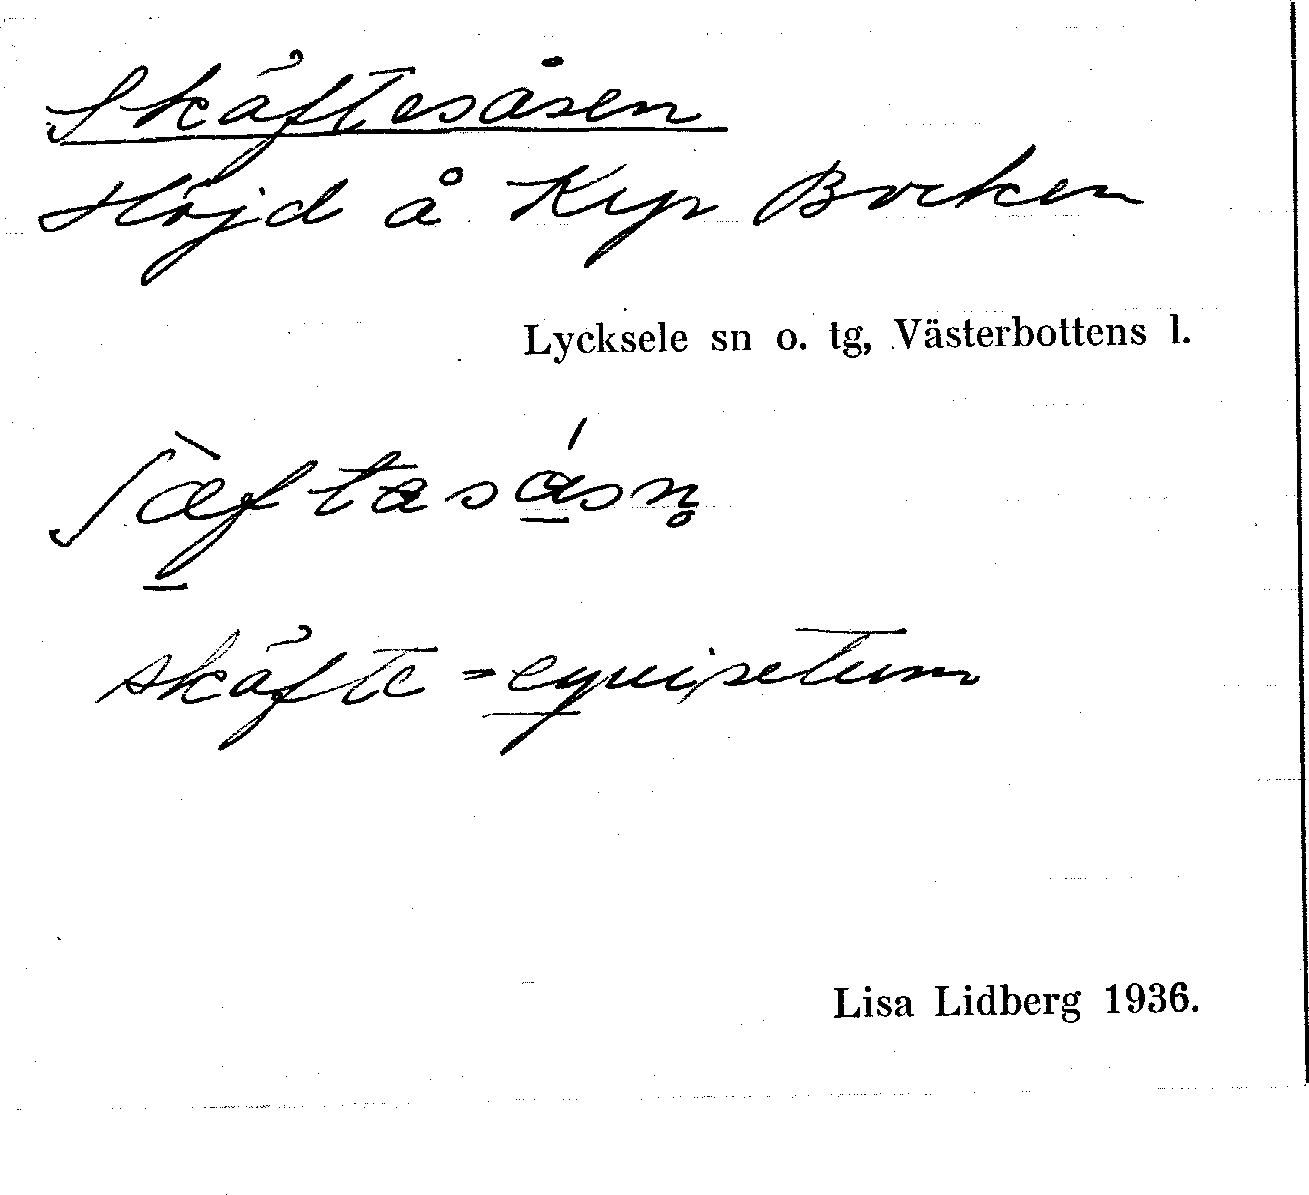 Skäftesåsen
Höjd å Kyp Bocken
Lycksele sn o. tg, Västerbottens l.
ʃæ̀ftasásn̥
skäfte = equisetum
Lisa Lidberg 1936.